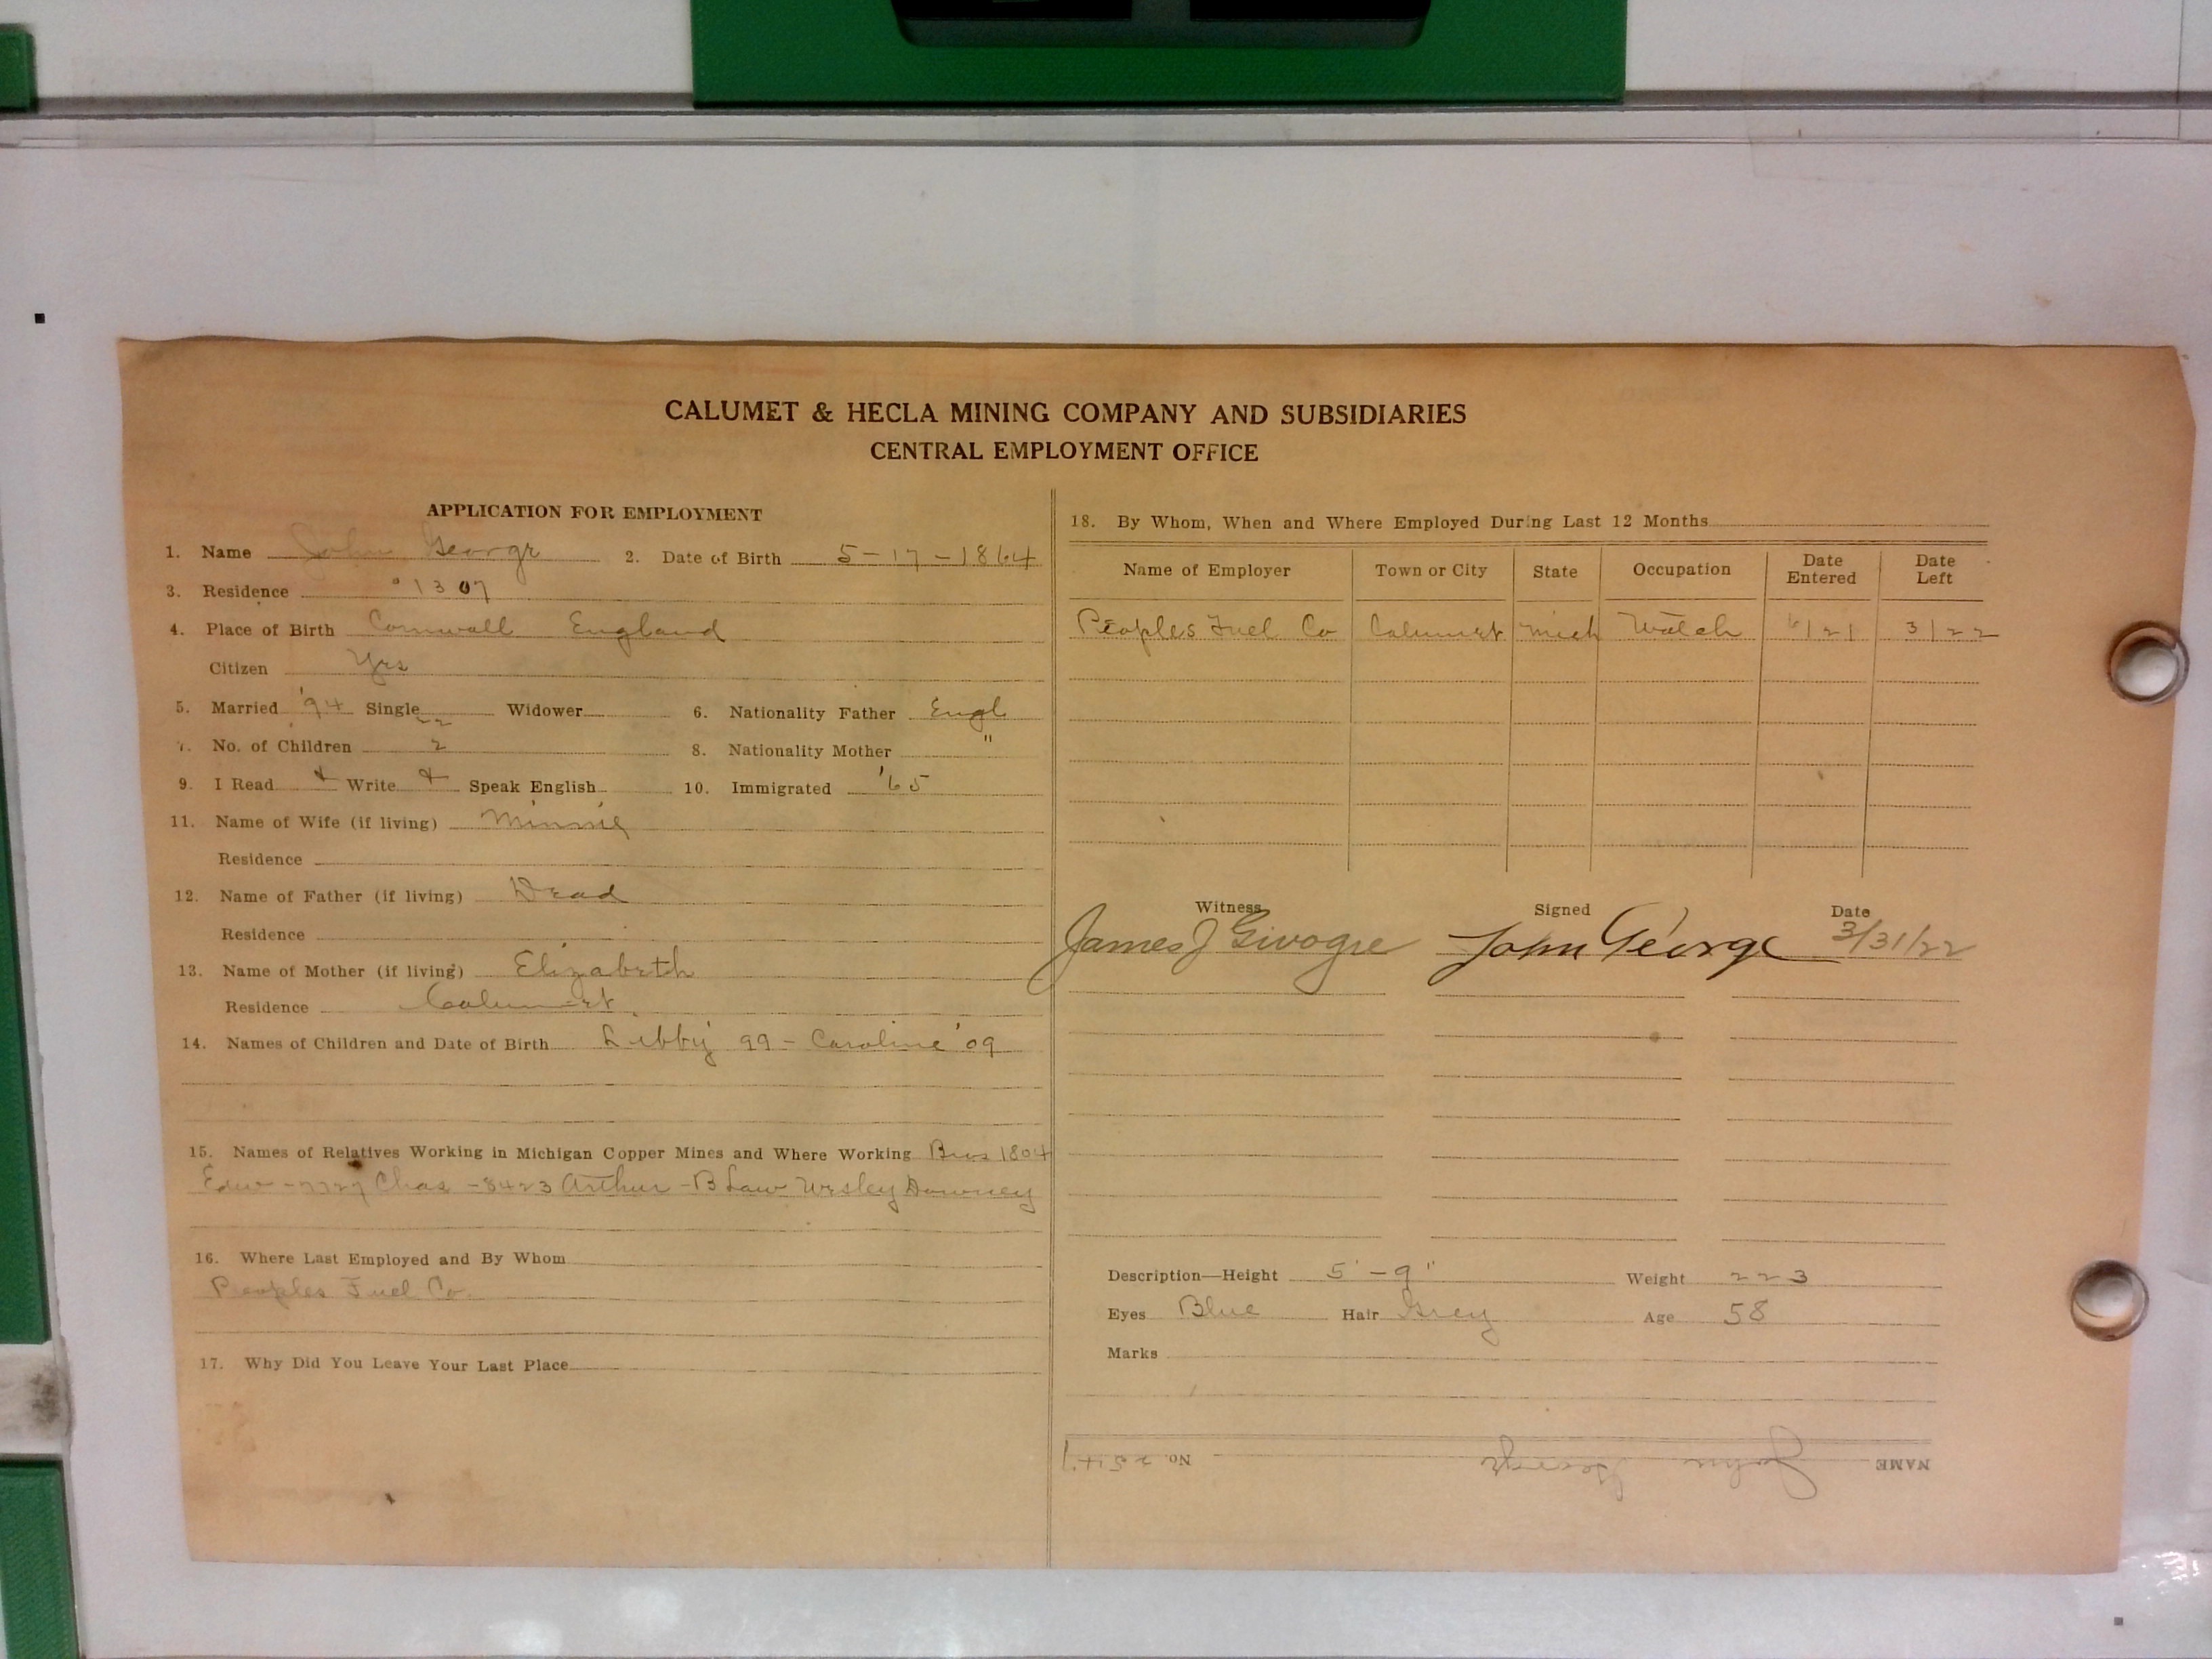 CALUMET & HECLA MINING COMPANY AND SUBSIDIARIES
CENTRAL EMPLOYMENT OFFICE
APPLICATION FOR EMPLOYMENT
1. Name John George 2. Date of Birth 5-17-1864
3. Residence 1307
4. Place of Birth Cornwall England
Citizen Yes
5. Married '94 Single Widower 6. Nationality Father Engl
7. No. of Children 2 8. Nationality Mother "
9. I Read Write Speak English 10. Immigrated '65
11. Name of Wife (if living) Minnie
Residence
12. Name of Father (if living) Dead
Residence
13. Name of Mother (if living) Elizabeth
Residence Calumet
14. Names of Children and Date of Birth Libby 99 - Caroline '09
15. Names of Relatives Working in Michigan Copper Mines and Where Working Bros 1804
Edw - Chas - 8423 Arthur - B Law Wesley Downey
16. Where Last Employed and By Whom
Peoples Fuel Co.
17. Why Did You Leave Your Last Place
18. By Whom, When and Where Employed During Last 12 Months
Name of Employer Town or City State Occupation Date Entered Date Left
Peoples Fuel Co Calumet Mich Watch 6/21 3/22
Witness Signed Date
James J John George 3/31/22
Description—Height 5'-9" Weight 223
Eyes Blue Hair Grey Age 58
Marks
NAME John George No.